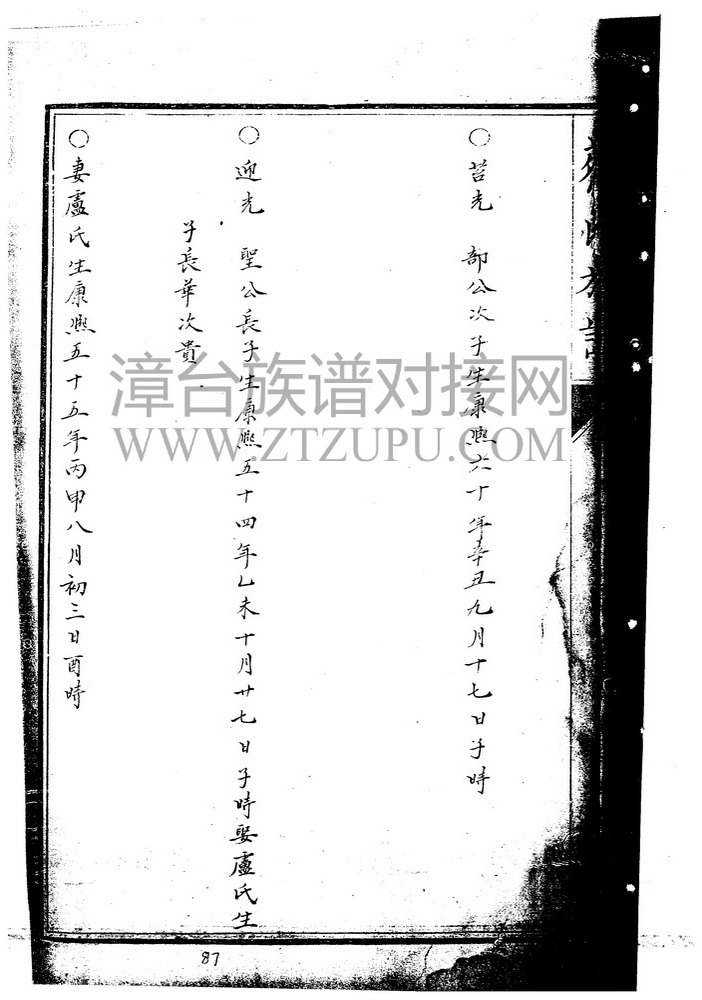 ○苔光 部公次子生康熙六十年辛丑九月十七日子時
○迎光 聖公長子生康熙五十四年乙未十月廿七日子時娶盧氏生
子長華次貴
○妻盧氏生康熙五十五年丙申八月初三日酉時
87
漳台族谱对接网
WWW.ZTZUPU.COM